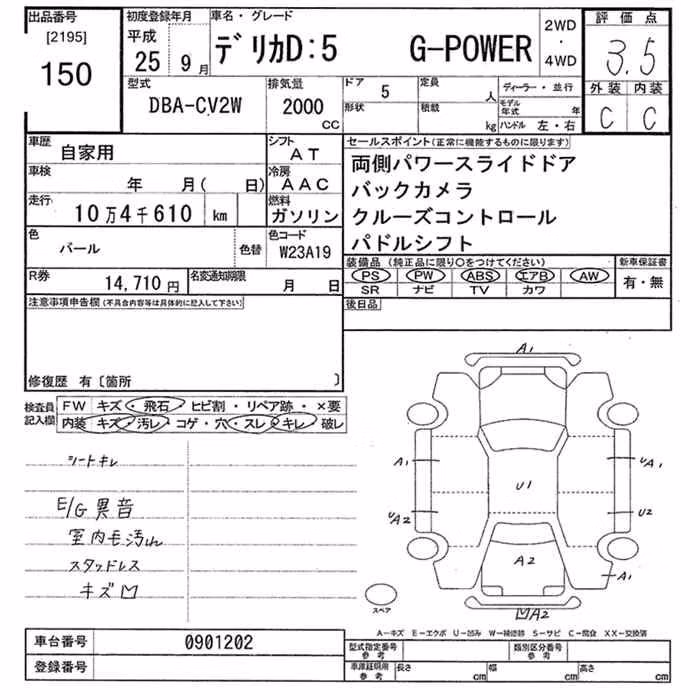 出品番号
[2195]
150
初度登録年月
平成
25年 9月
車名・グレード
デリカD:5 G-POWER
2WD
・
4WD
評価点
3.5
外装 内装
C C
型式
DBA-CV2W
排気量
2000
CC
ドア 5
形状
定員 人
積載 kg
ディーラー・並行
モデル年式 年
ハンドル 左・右
車歴 自家用
シフト
AT
車検 年 月( 日)
冷房
AAC
走行 10万4千610 km
燃料
ガソリン
色 パール 色替
色コード
W23A19
R券 14,710円
名変通知期限 月 日
セールスポイント(正常に機能するものに限ります)
両側パワースライドドア
バックカメラ
クルーズコントロール
パドルシフト
装備品(純正品に限り○をつけてください)
PS PW ABS エアB AW
SR ナビ TV カワ
新車保証書
有・無
後日品
注意事項申告欄(不具合内容等は具体的に記入して下さい)
修復歴 有〔箇所 〕
検査員記入欄
FW キズ・飛石・ヒビ割・リペア跡・×要
内装 キズ・汚レ・コゲ・穴・スレ・キレ・破レ
シートキレ
E/G異音
室内モ汚れ
スタッドレス
キズ凹
A1
A1
U1
UA1
UA2
U2
A2
A1
凹A2
スペア
A-キズ E-エクボ U-凹み W-補修跡 S-サビ C-腐食 XX-交換済
車台番号 0901202
登録番号
型式指定番号
参考
類別区分番号
参考
車庫証明用
参考
長さ cm
幅 cm
高さ cm